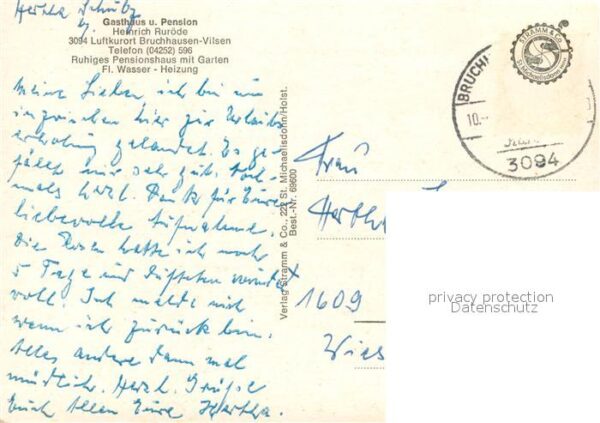 Hertha Schulz
Gasthaus u. Pension
Heinrich Ruröde
3094 Luftkurort Bruchhausen-Vilsen
Telefon (04252) 596
Ruhiges Pensionshaus mit Garten
Fl. Wasser - Heizung
Meine Lieben ich bin nun
inzwischen hier zur Urlaubs
erholung gelandet. Es ge-
fällt mir sehr gut. Noch-
mals herzl. Dank für Eure
liebevolle Aufnahme.
Die Rosen hatte ich noch
5 Tage und dufteten wunder
voll. Ich melde mich
wenn ich zurück bin.
Alles andere dann mal
mündlich. Herzl. Grüße
Euch Allen Eure Hertha.
Verlag Stramm & Co., 222 St. Michaelisdonn/Holst.
Best.-Nr. 69600
STRAMM & CO
St. Michaelisdonn
BRUCH
10.-
3094
Frau
Herth
1609
Wies
privacy protection
Datenschutz